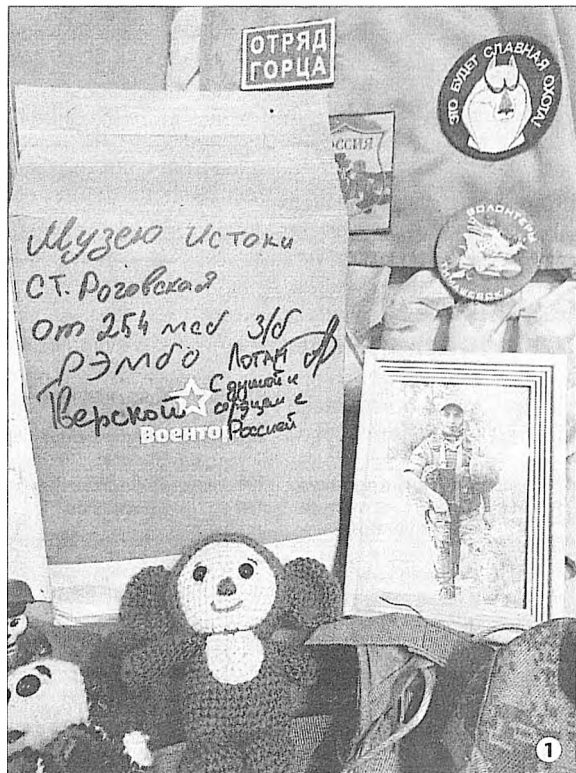 ОТРЯД
ГОРЦА
ЭТО БУДЕТ СЛАВНАЯ ОХОТА!
РОССИЯ
ВОЛОНТЕРЫ
Музею Истоки
ст. Роговская
от 254 мсб 3/б
РЭМбо Лотан
Тверской
С душой и
сердцем с
Россией
Военто
1